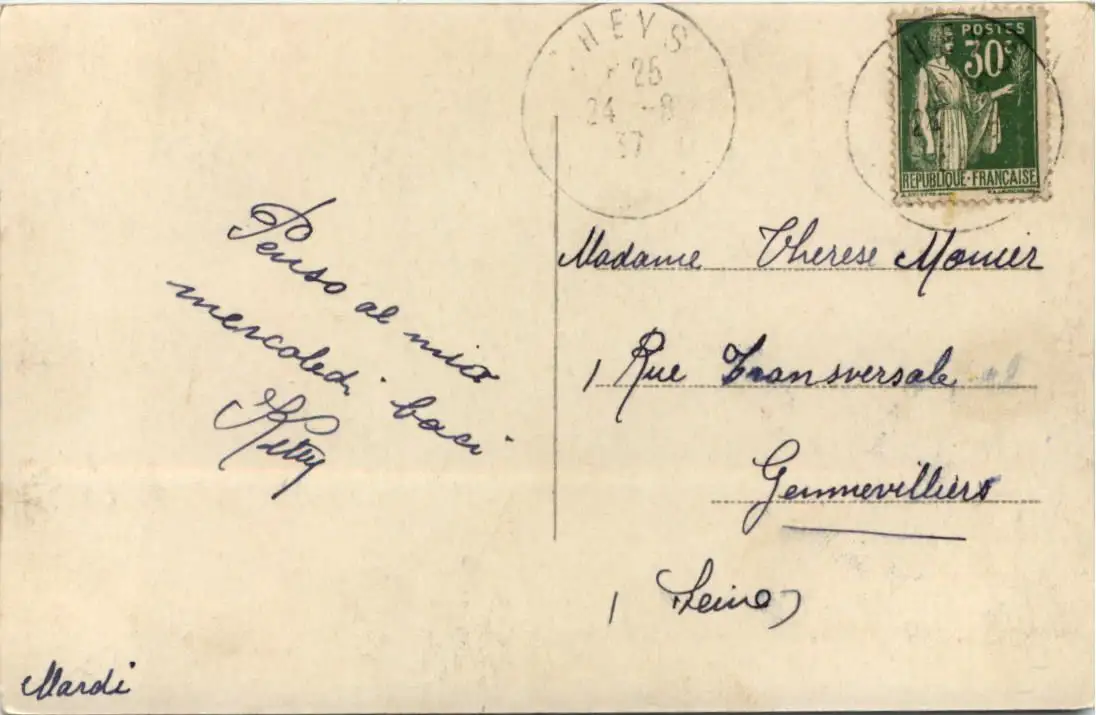 THEYS
25
24 -8
37
POSTES
30c
RÉPUBLIQUE-FRANÇAISE
Penso al mio
mercoledi baci
Ketty
Madame Therese Monier
1 Rue Transversale
Gennevilliers
(Seine)
Mardi